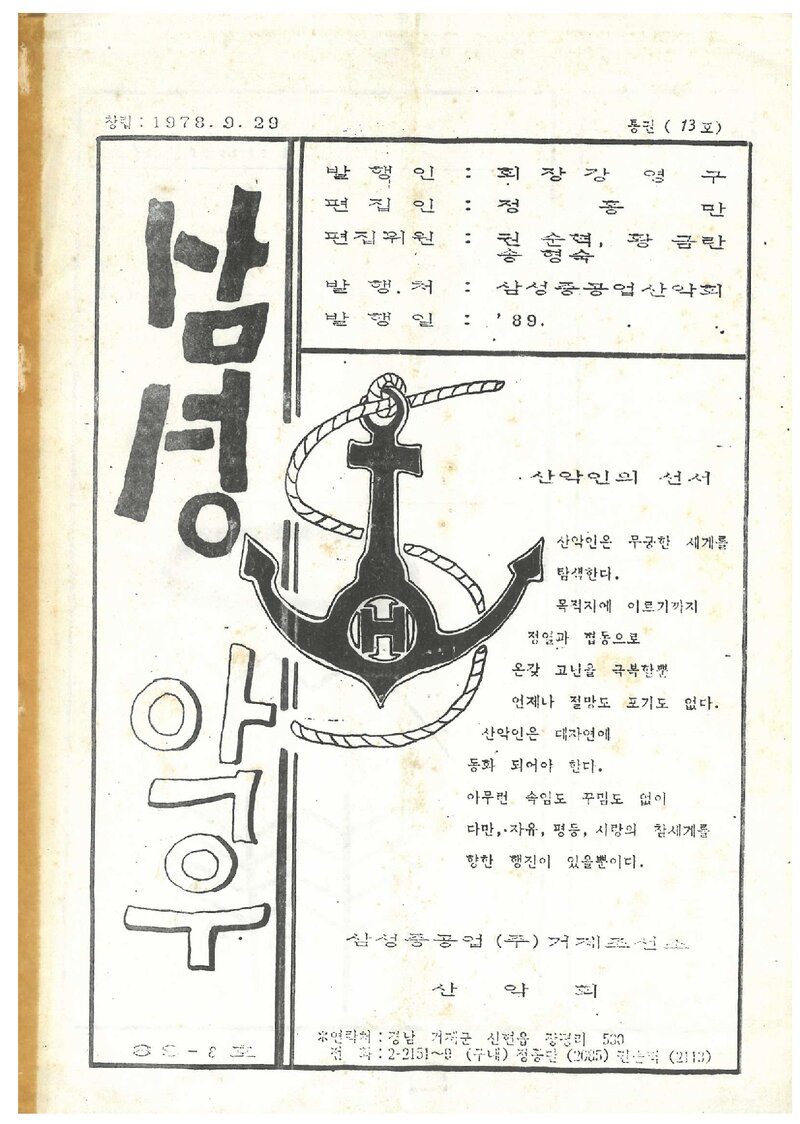 창립 : 1978. 9. 29
통권 ( 13 호)
발 행 인 : 회 장 강 영 구
편 집 인 : 정 종 만
편집위원 : 권 순혁, 황 금란
송 형숙
발 행. 처 : 삼성중공업산악회
발 행 일 : '89. . .
삼성
산악인의 선서
산악인은 무궁한 세계를
탐색한다.
목적지에 이르기까지
정열과 협동으로
온갖 고난을 극복할뿐
언제나 절망도 포기도 없다.
산악인은 대자연에
동화 되어야 한다.
아무런 속임도 꾸밈도 없이
다만, 자유, 평등, 사랑의 참세계를
향한 행진이 있을뿐이다.
H
삼성중공업 (주) 거제조선소
산 악 회
※연락처 : 경남 거제군 신현읍 장평리 530
전 화 : 2-2151~9 (구내)